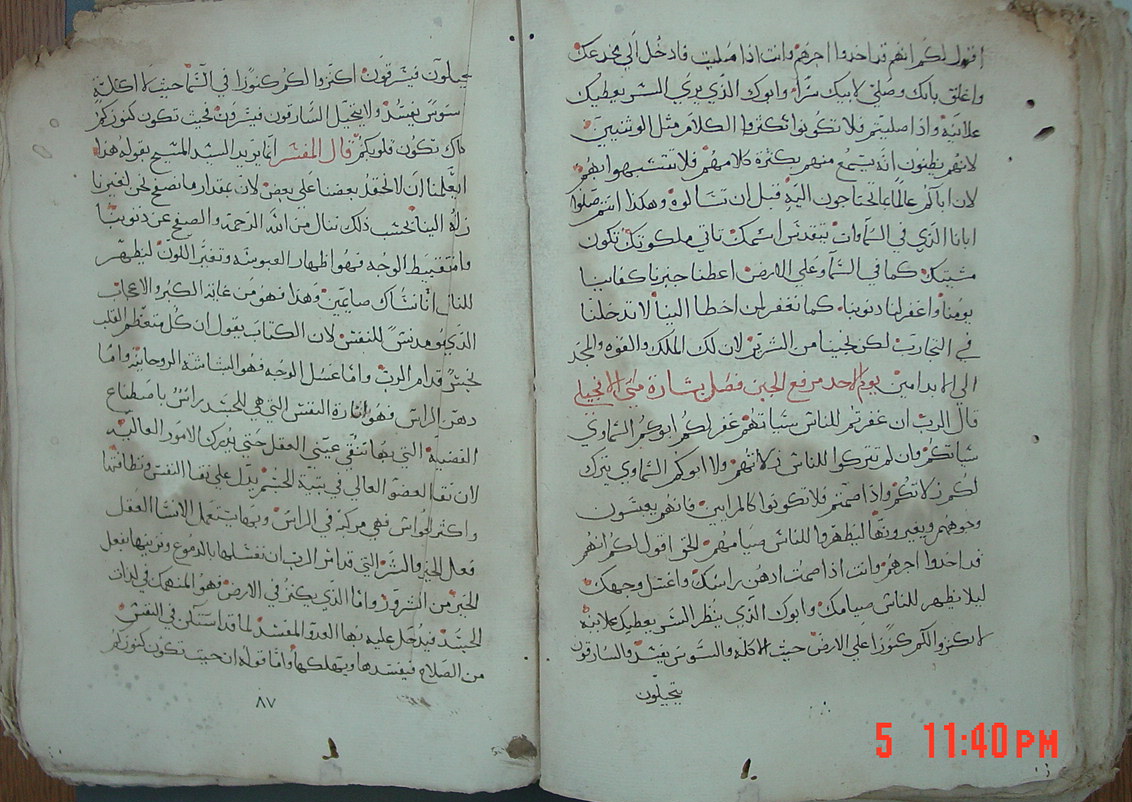 اقول لكم انهم قد اخدوا اجرهم وانت اذا صليت فادخل الي مخدعك
واغلق بابك وصلي لابيك سرًا وابوك الذي يري السر يعطيك
علانية واذا صليتم فلا تكونوا تكثروا الكلام مثل الوثنيين
لانهم يظنون انه يسمع منهم بكثرة كلامهم فلا تتشبهوا بهم
لان اباكم عالمًا بما تحتاجون اليه قبل ان تسالوه وهكذا انتم صلوا
ابانا الذي في السماوات يتقدس اسمك تاتي ملكوتك تكون
مشيتك كما في السما وعلي الارض اعطنا خبزنا كفافنا
يومنا واغفر لنا دنوبنا كما نغفر لمن اخطا الينا لا تدخلنا
في التجارب لكن نجينا من الشرير لان لك الملك والقوه والمجد
الي الابد امين يوم الاحد مرفع الجبن فصل بشارة متي الانجيلي
قال الرب ان غفرتم للناس سياتهم غفر لكم ابوكم السماوي
سياتكم وان لم تتركوا للناس زلاتهم ولا ابوكم السماوي يترك
لكم زلاتكم واذا صمتم فلا تكونوا كالمرايين فانهم يعبسون
وجوههم ويغيرونها ليظهروا للناس صيامهم الحق اقول لكم انهم
قد اخدوا اجرهم وانت اذا صمت ادهن راسك واغتسل وجهك
ليلا يظهر للناس صيامك وابوك الذي ينظر السر يعطيك علانيه
لا تكنزوا لكم كنوزًا علي الارض حيث الاكله والسوس يفسد والسارقون
يتحيلون
يتحيلون فيسرقون اكنزوا لكم كنوزًا في السما حيث لا اكلة
سوس يفسد ولا يتحيل السارقون فيسرقون فحيث تكون كنوزكم
هناك تكون قلوبكم قال المفسر انما يريد السيد المسيح بقوله هذا
ليعلمنا ان لا نحقد بعضنا علي بعض لان بمقدار ما نصفح نحن لغيرنا
زلة الينا بحسب ذلك ننال من الله الرحمة والصفح عن دنوبنا
واما تقبيط الوجه فهو اظهار العبوسه وتغير اللون ليظهر
للناس اننا نساك صايمين وهذا فهو من غاية الكبر والاعجاب
الذي هو مدنس للنفس لان الكتاب يقول ان كل متعظم القلب
نجس قدام الرب واما غسل الوجه فهو البشاشة الروحانية واما
دهن الراس فهو انارة النفس التي هي للجسد راس باصطناع
الفضيلة التي بها تنقي عيني العقل حتي يدرك الامور العالية
لان نقا العضو العالي في بنية الجسم يدل علي نقا النفس ونظافتها
واكثر الحواس فهي مركبة في الراس وبها يستعمل الانسان العقل
فعل الخير والشر التي قد امر الرب ان نغسلها بالدموع ونزينها بفعل
الخير من الشرور واما الذي يكنز في الارض فهو المنهمك في لدات
الجسد فيدخل عليه بها العدو المفسد لما قد استكن في النفس
من الصلاح فيفسدها ويهلكها واما قوله ان حيث تكون كنوزكم
٨٧
5 11:40 PM